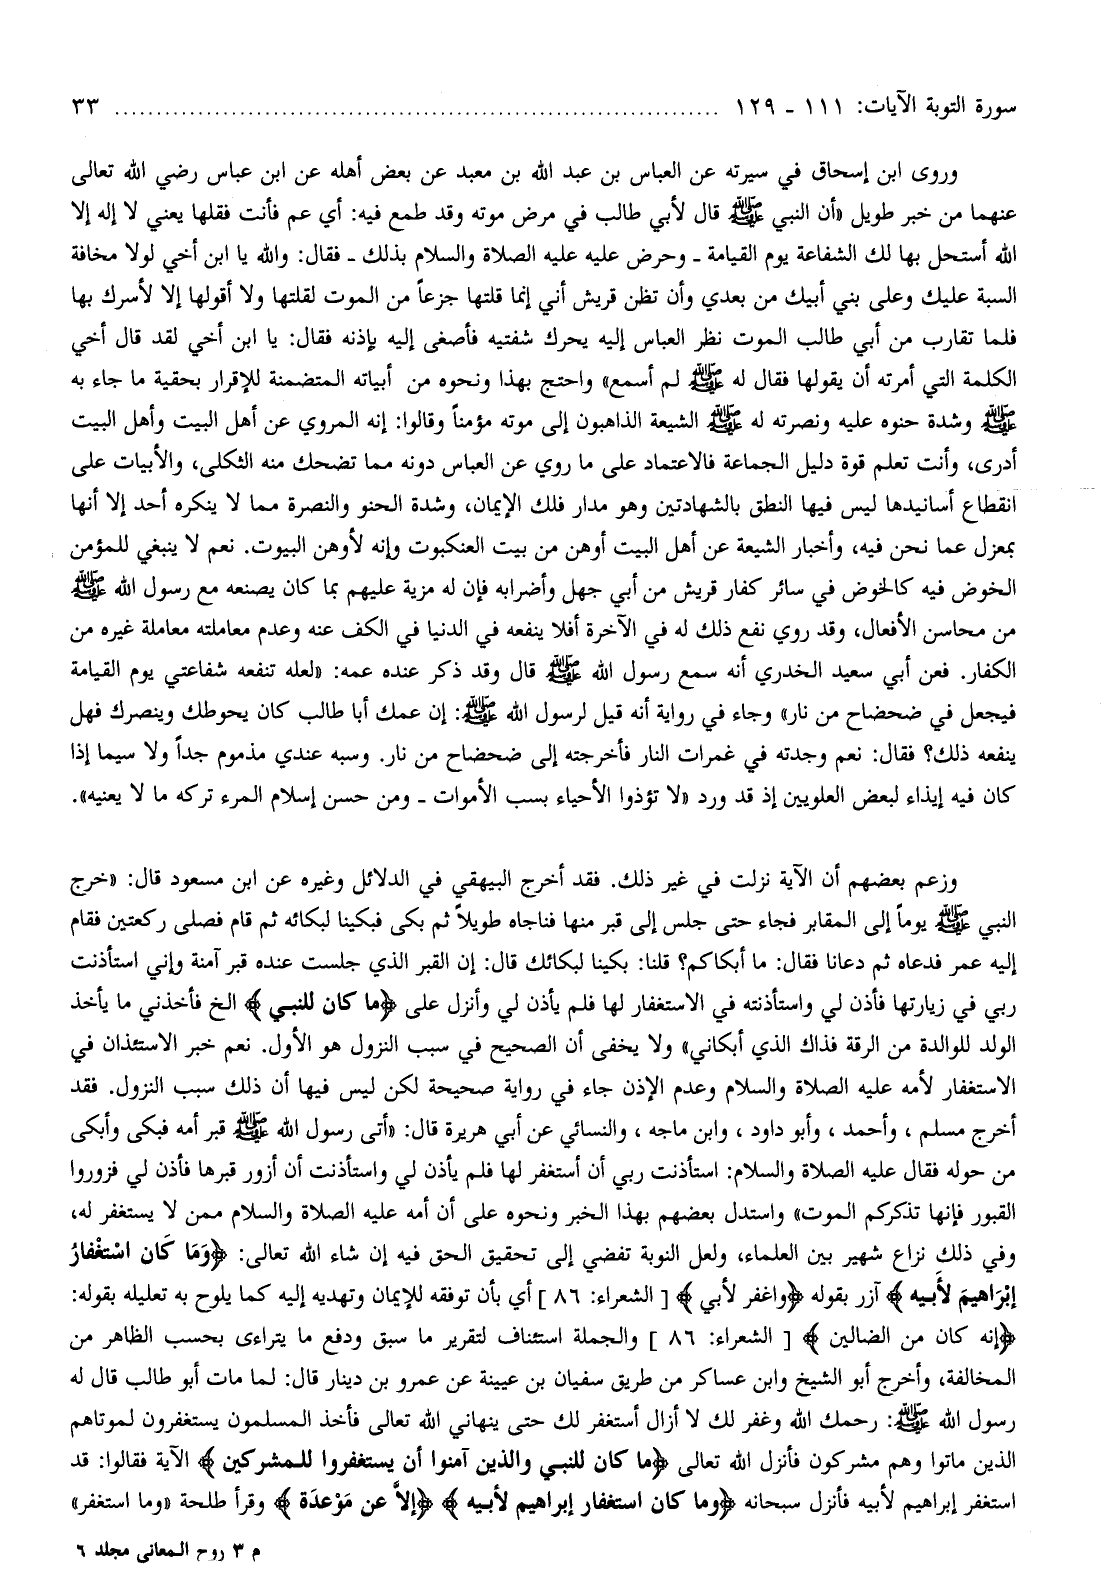 سورة التوبة الآيات: ١١١ ـ ١٢٩ ........................................................................ ٣٣
وروى ابن إسحاق في سيرته عن العباس بن عبد الله بن معبد عن بعض أهله عن ابن عباس رضي الله تعالى
عنهما من خبر طويل «أن النبي ﷺ قال لأبي طالب في مرض موته وقد طمع فيه: أي عم فأنت فقلها يعني لا إله إلا
الله أستحل بها لك الشفاعة يوم القيامة ـ وحرض عليه عليه الصلاة والسلام بذلك ـ فقال: والله يا ابن أخي لولا مخافة
السبة عليك وعلى بني أبيك من بعدي وأن تظن قريش أني إنما قلتها جزعاً من الموت لقلتها ولا أقولها إلا لأسرك بها
فلما تقارب من أبي طالب الموت نظر العباس إليه يحرك شفتيه فأصغى إليه بإذنه فقال: يا ابن أخي لقد قال أخي
الكلمة التي أمرته أن يقولها فقال له ﷺ لم أسمع» واحتج بهذا ونحوه من أبياته المتضمنة للإقرار بحقية ما جاء به
ﷺ وشدة حنوه عليه ونصرته له ﷺ الشيعة الذاهبون إلى موته مؤمناً وقالوا: إنه المروي عن أهل البيت وأهل البيت
أدرى، وأنت تعلم قوة دليل الجماعة فالاعتماد على ما روي عن العباس دونه مما تضحك منه الثكلى، والأبيات على
انقطاع أسانيدها ليس فيها النطق بالشهادتين وهو مدار فلك الإيمان، وشدة الحنو والنصرة مما لا ينكره أحد إلا أنها
بمعزل عما نحن فيه، وأخبار الشيعة عن أهل البيت أوهن من بيت العنكبوت وإنه لأوهن البيوت. نعم لا ينبغي للمؤمن
الخوض فيه كالخوض في سائر كفار قريش من أبي جهل وأضرابه فإن له مزية عليهم بما كان يصنعه مع رسول الله ﷺ
من محاسن الأفعال، وقد روي نفع ذلك له في الآخرة أفلا ينفعه في الدنيا في الكف عنه وعدم معاملته معاملة غيره من
الكفار. فعن أبي سعيد الخدري أنه سمع رسول الله ﷺ قال وقد ذكر عنده عمه: «لعله تنفعه شفاعتي يوم القيامة
فيجعل في ضحضاح من نار» وجاء في رواية أنه قيل لرسول الله ﷺ: إن عمك أبا طالب كان يحوطك وينصرك فهل
ينفعه ذلك؟ فقال: نعم وجدته في غمرات النار فأخرجته إلى ضحضاح من نار. وسبه عندي مذموم جداً ولا سيما إذا
كان فيه إيذاء لبعض العلويين إذ قد ورد «لا تؤذوا الأحياء بسب الأموات ـ ومن حسن إسلام المرء تركه ما لا يعنيه».
وزعم بعضهم أن الآية نزلت في غير ذلك. فقد أخرج البيهقي في الدلائل وغيره عن ابن مسعود قال: «خرج
النبي ﷺ يوماً إلى المقابر فجاء حتى جلس إلى قبر منها فناجاه طويلاً ثم بكى فبكينا لبكائه ثم قام فصلى ركعتين فقام
إليه عمر فدعاه ثم دعانا فقال: ما أبكاكم؟ قلنا: بكينا لبكائك قال: إن القبر الذي جلست عنده قبر آمنة وإني استأذنت
ربي في زيارتها فأذن لي واستأذنته في الاستغفار لها فلم يأذن لي وأنزل على ﴿ما كان للنبي﴾ الخ فأخذني ما يأخذ
الولد للوالدة من الرقة فذاك الذي أبكاني» ولا يخفى أن الصحيح في سبب النزول هو الأول. نعم خبر الاستئذان في
الاستغفار لأمه عليه الصلاة والسلام وعدم الإذن جاء في رواية صحيحة لكن ليس فيها أن ذلك سبب النزول. فقد
أخرج مسلم ، وأحمد ، وأبو داود ، وابن ماجه ، والنسائي عن أبي هريرة قال: «أتى رسول الله ﷺ قبر أمه فبكى وأبكى
من حوله فقال عليه الصلاة والسلام: استأذنت ربي أن أستغفر لها فلم يأذن لي واستأذنت أن أزور قبرها فأذن لي فزوروا
القبور فإنها تذكركم الموت» واستدل بعضهم بهذا الخبر ونحوه على أن أمه عليه الصلاة والسلام ممن لا يستغفر له،
وفي ذلك نزاع شهير بين العلماء، ولعل النوبة تفضي إلى تحقيق الحق فيه إن شاء الله تعالى: ﴿وَمَا كَان اسْتِغْفارُ
إِبْرَاهيمَ لأَبيه﴾ آزر بقوله ﴿واغفر لأبي﴾ [ الشعراء: ٨٦ ] أي بأن توفقه للإيمان وتهديه إليه كما يلوح به تعليله بقوله:
﴿إنه كان من الضالين﴾ [ الشعراء: ٨٦ ] والجملة استئناف لتقرير ما سبق ودفع ما يتراءى بحسب الظاهر من
المخالفة، وأخرج أبو الشيخ وابن عساكر من طريق سفيان بن عيينة عن عمرو بن دينار قال: لما مات أبو طالب قال له
رسول الله ﷺ: رحمك الله وغفر لك لا أزال أستغفر لك حتى ينهاني الله تعالى فأخذ المسلمون يستغفرون لموتاهم
الذين ماتوا وهم مشركون فأنزل الله تعالى ﴿ما كان للنبي والذين آمنوا أن يستغفروا للمشركين﴾ الآية فقالوا: قد
استغفر إبراهيم لأبيه فأنزل سبحانه ﴿وما كان استغفار إبراهيم لأبيه﴾ ﴿إلاَّ عن مَوْعدَة﴾ وقرأ طلحة «وما استغفر»
م ٣ روح المعاني مجلد ٦